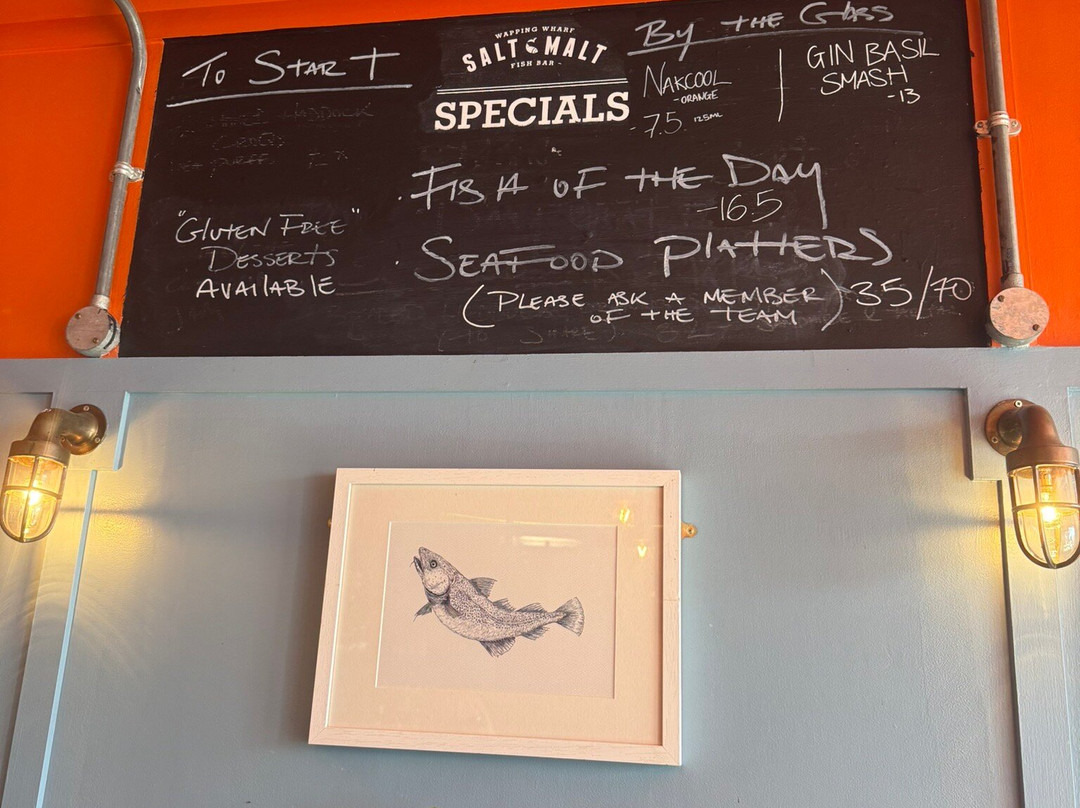 To Start
"Gluten Free"
Desserts
Available
WAPPING WHARF
SALT & MALT
- FISH BAR -
SPECIALS
By the Glass
NAKCOOL
- ORANGE
- 7.5 125ML
GIN BASIL
SMASH
- 13
· FISH OF THE DAY
- 16.5
· SEAFOOD PLATTERS
(PLEASE ASK A MEMBER
OF THE TEAM) - 35/70